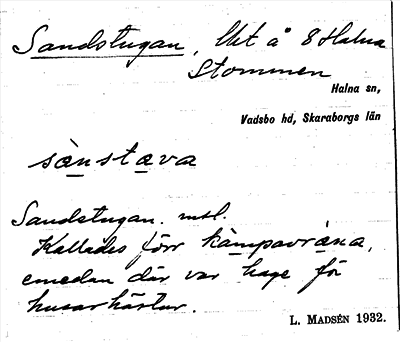 Sandstugan, Utt å 8 Halna
Stommen
Halna sn,
Vadsbo hd, Skaraborgs län
sànstava
Sandstugan. msl.
Kallades förr kàmpavräna,
emedan där var hage för
husarhästar.
L. MADSÉN 1932.